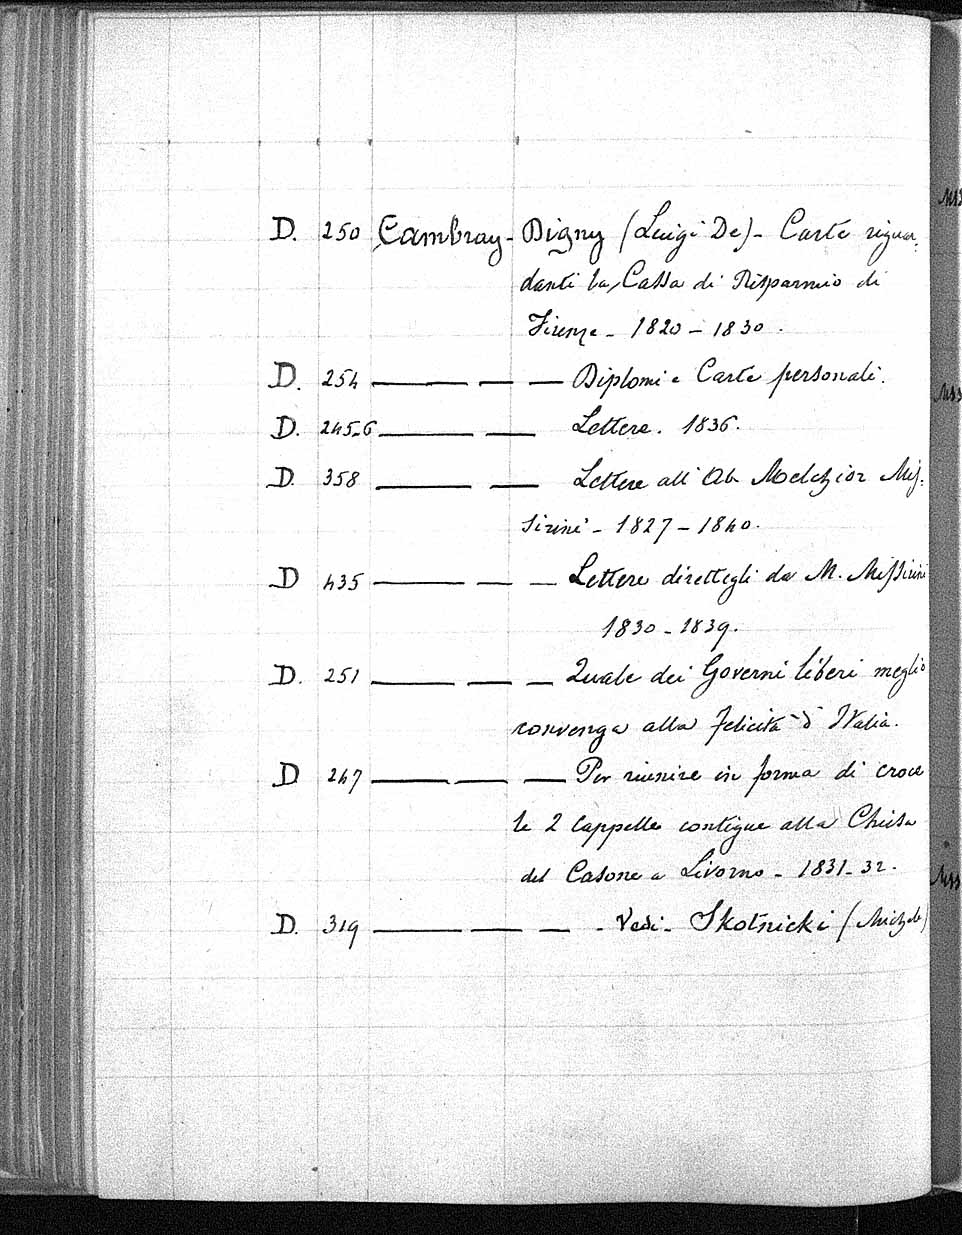 D. 250 Cambray-Digny (Luigi De) - Carte riguar=
danti la Cassa di Risparmio di
Firenze - 1820 - 1830.
D. 254 — — — Diplomi e Carte personali.
D. 245-6 — — Lettere. 1836.
D. 358 — — Lettere all'Ab. Melchior Mis=
sirini - 1827 - 1840.
D 435 — — — Lettere direttegli da M. Missirini
1830 - 1839.
D. 251 — — — Quale dei Governi liberi meglio
convenga alla felicità d'Italia.
D 247 — — — Per riunire in forma di croce
le 2 Cappelle contigue alla Chiesa
del Casone a Livorno - 1831-32.
D. 319 — — — - Vedi - Skotnicki (Michele)
Mss
Mss
Mss